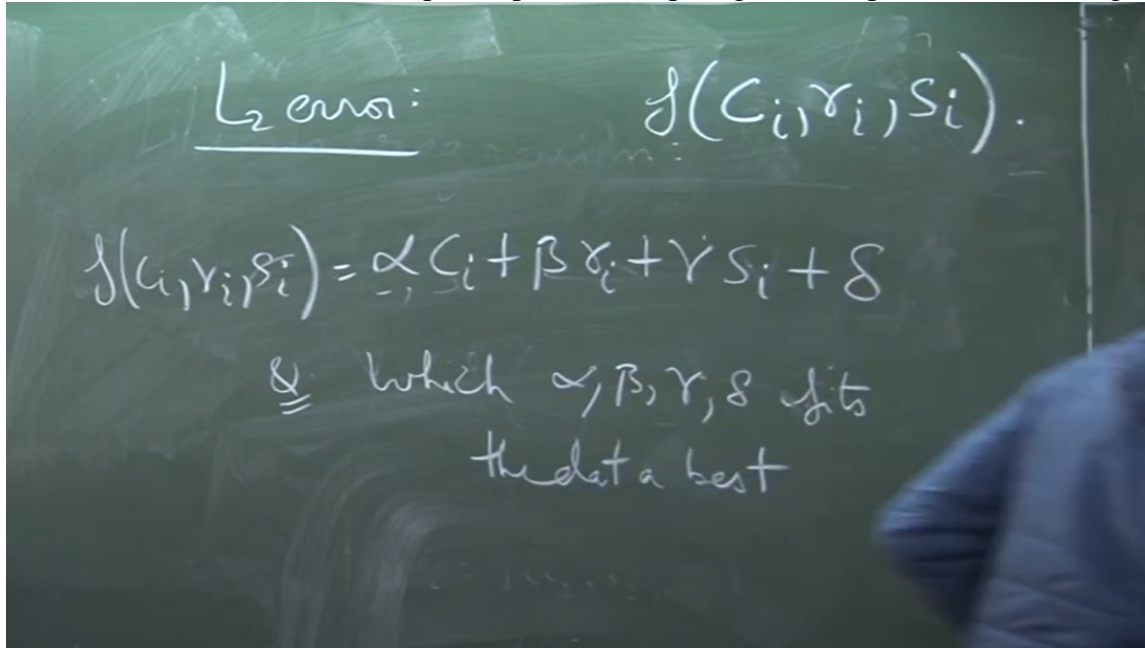 L₂ error: f(Cᵢ, rᵢ, Sᵢ).
f(cᵢ, rᵢ, sᵢ) = α Cᵢ + β rᵢ + γ Sᵢ + δ
Q. Which α, β, γ, δ fits
the data best